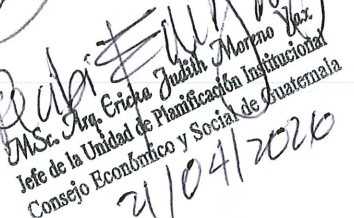 MSc. Arq. Ericka Judith Moreno Yax
Jefe de la Unidad de Planificación Institucional
Consejo Económico y Social de Guatemala
21/04/2026